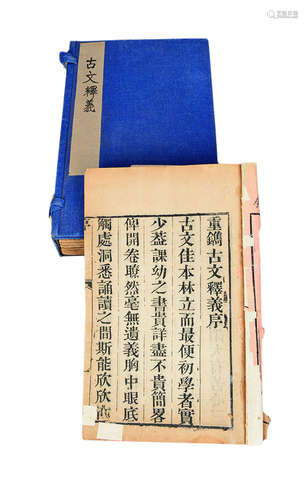 古文釋義
重鐫古文釋義序
古文佳本林立而最便初學者實
少葢課幼之書貴詳盡不貴簡畧
俾開卷瞭然毫無遺義胸中眼底
觸處洞悉誦讀之間斯能欣欣
序